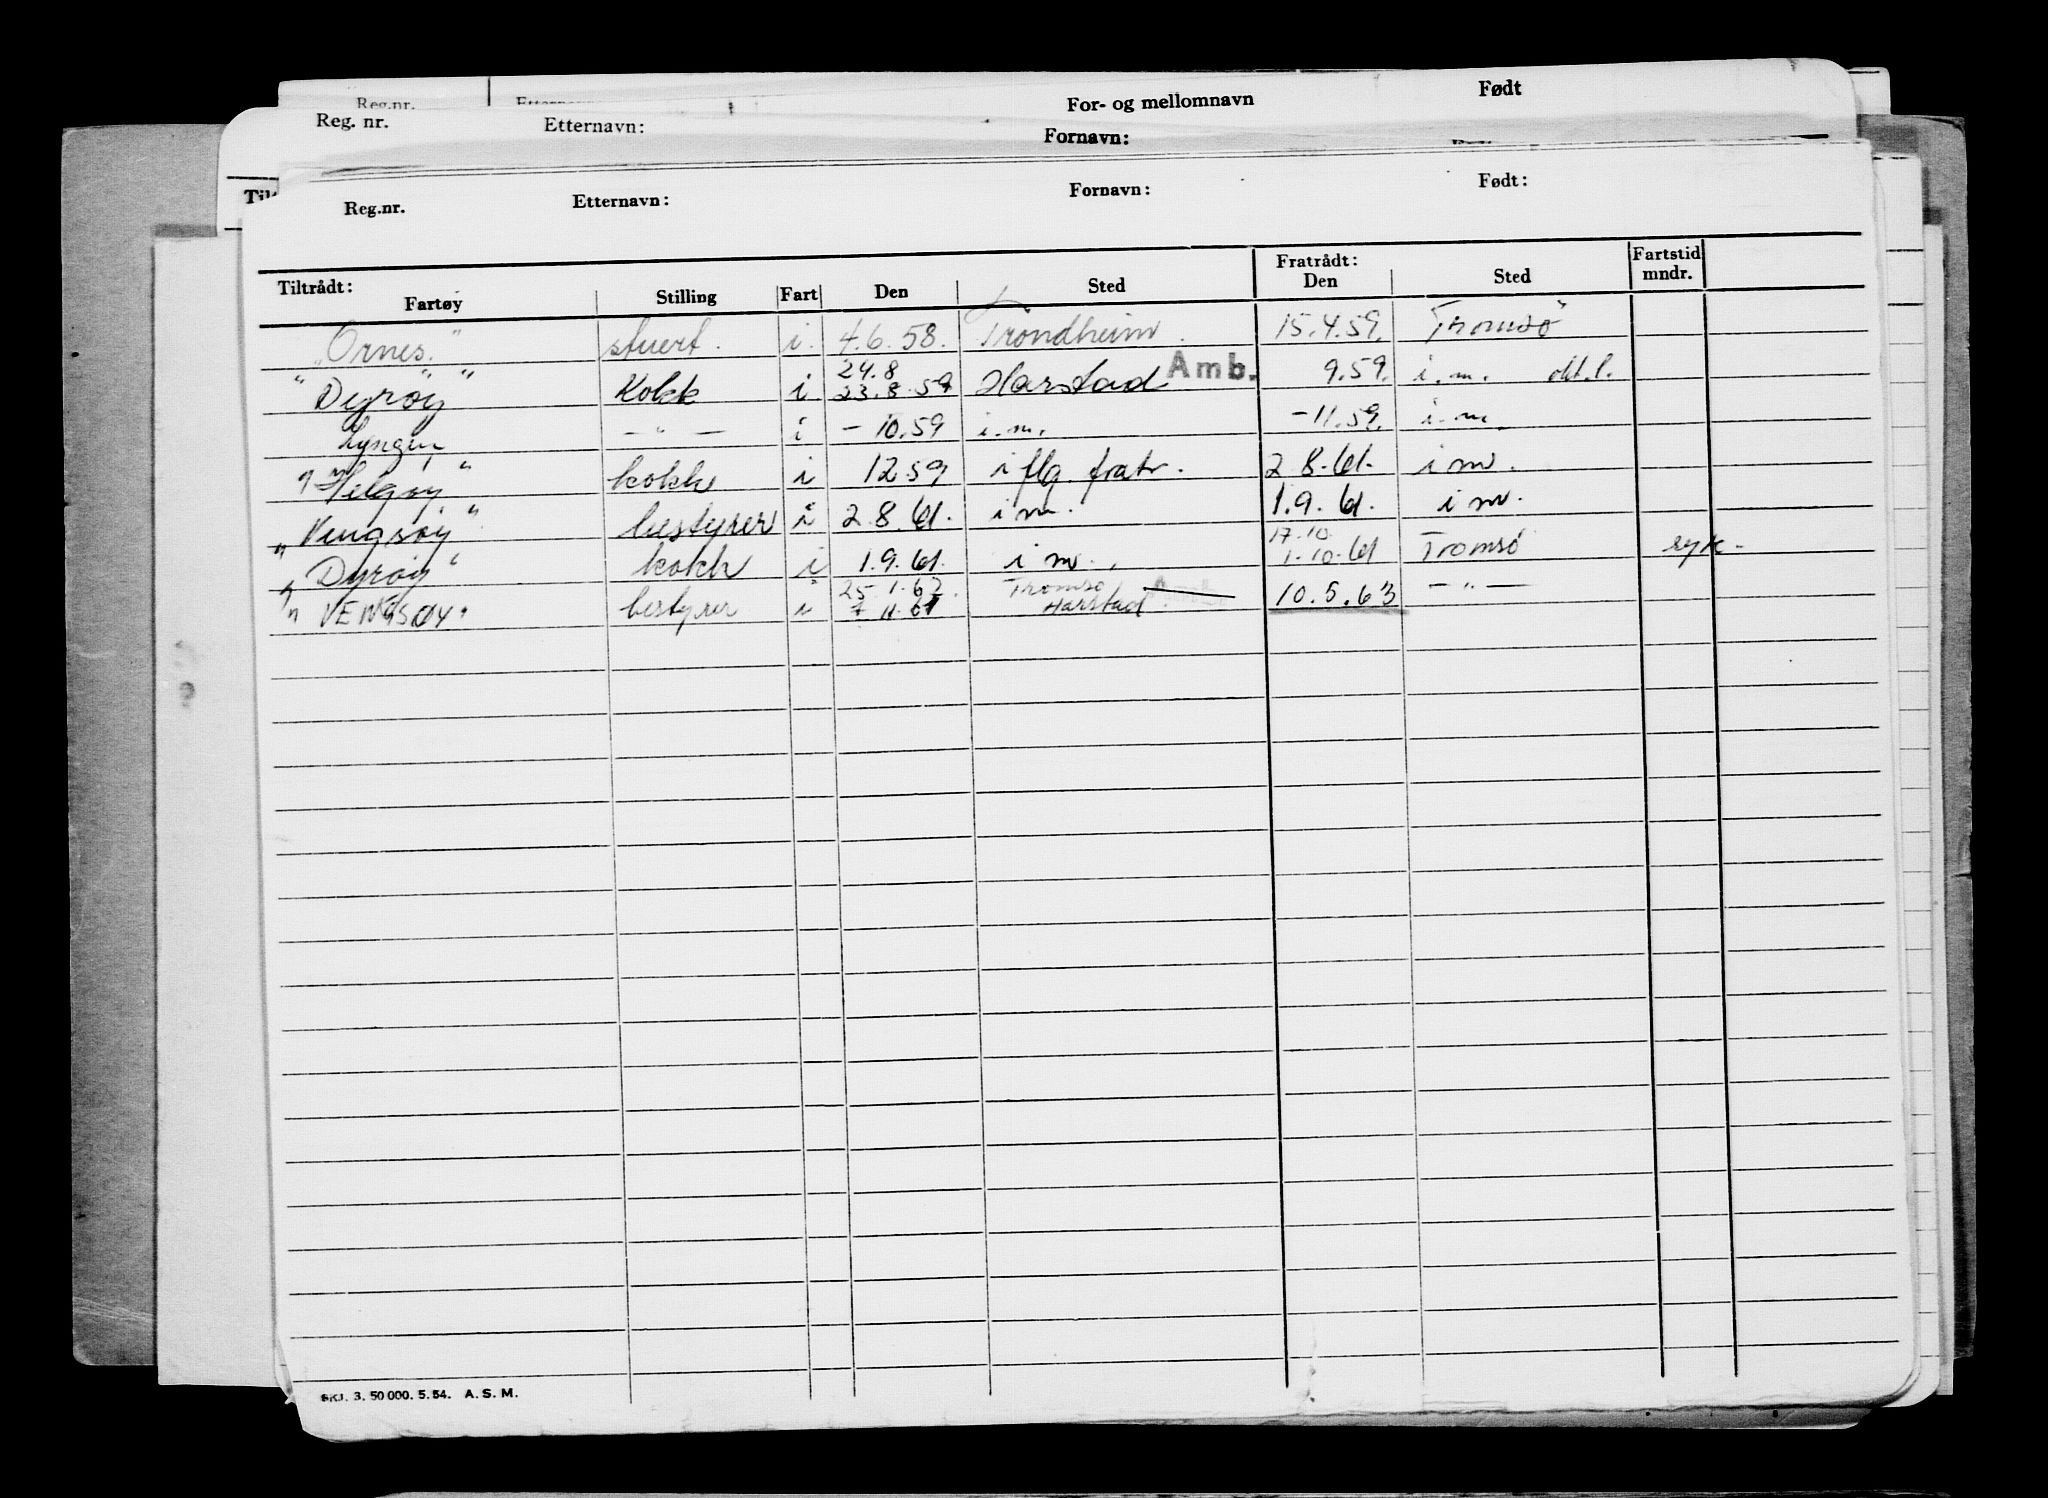 Reg.nr. Etternavn: For- og mellomnavn Født
Reg. nr. Etternavn: Fornavn:
Reg.nr. Etternavn: Fornavn: Født:
Tiltrådt: Fratrådt: Fartstid
Fartøy Stilling Fart Den Sted Den Sted mndr.
"Ornes." stuert. i. 4.6.58. Trondheim. 15.4.59. Tromsø
24.8
"Dyrøy" Kokk i 23.8.59 Harstad Amb. 9.59. i.m. okt.l.
Lyngen — " — i - 10.59 i.m. - 11.59. i.m.
"Helgøy" kokk i 12 59 i flg. fratr. 2 8.61. i m.
"Vengsøy" bestyrer i 2.8.61. i m. 1.9.61. i m.
17.10
"Dyrøy" kokk i 1.9.61. i m. 1.10.61 Tromsø syk.
25.1.62. Tromsø
"VENGSØY" bestyrer i 7.11.61 Harstad. 10.5.63 — " —
SKJ. 3. 50 000. 5. 54. A. S. M.